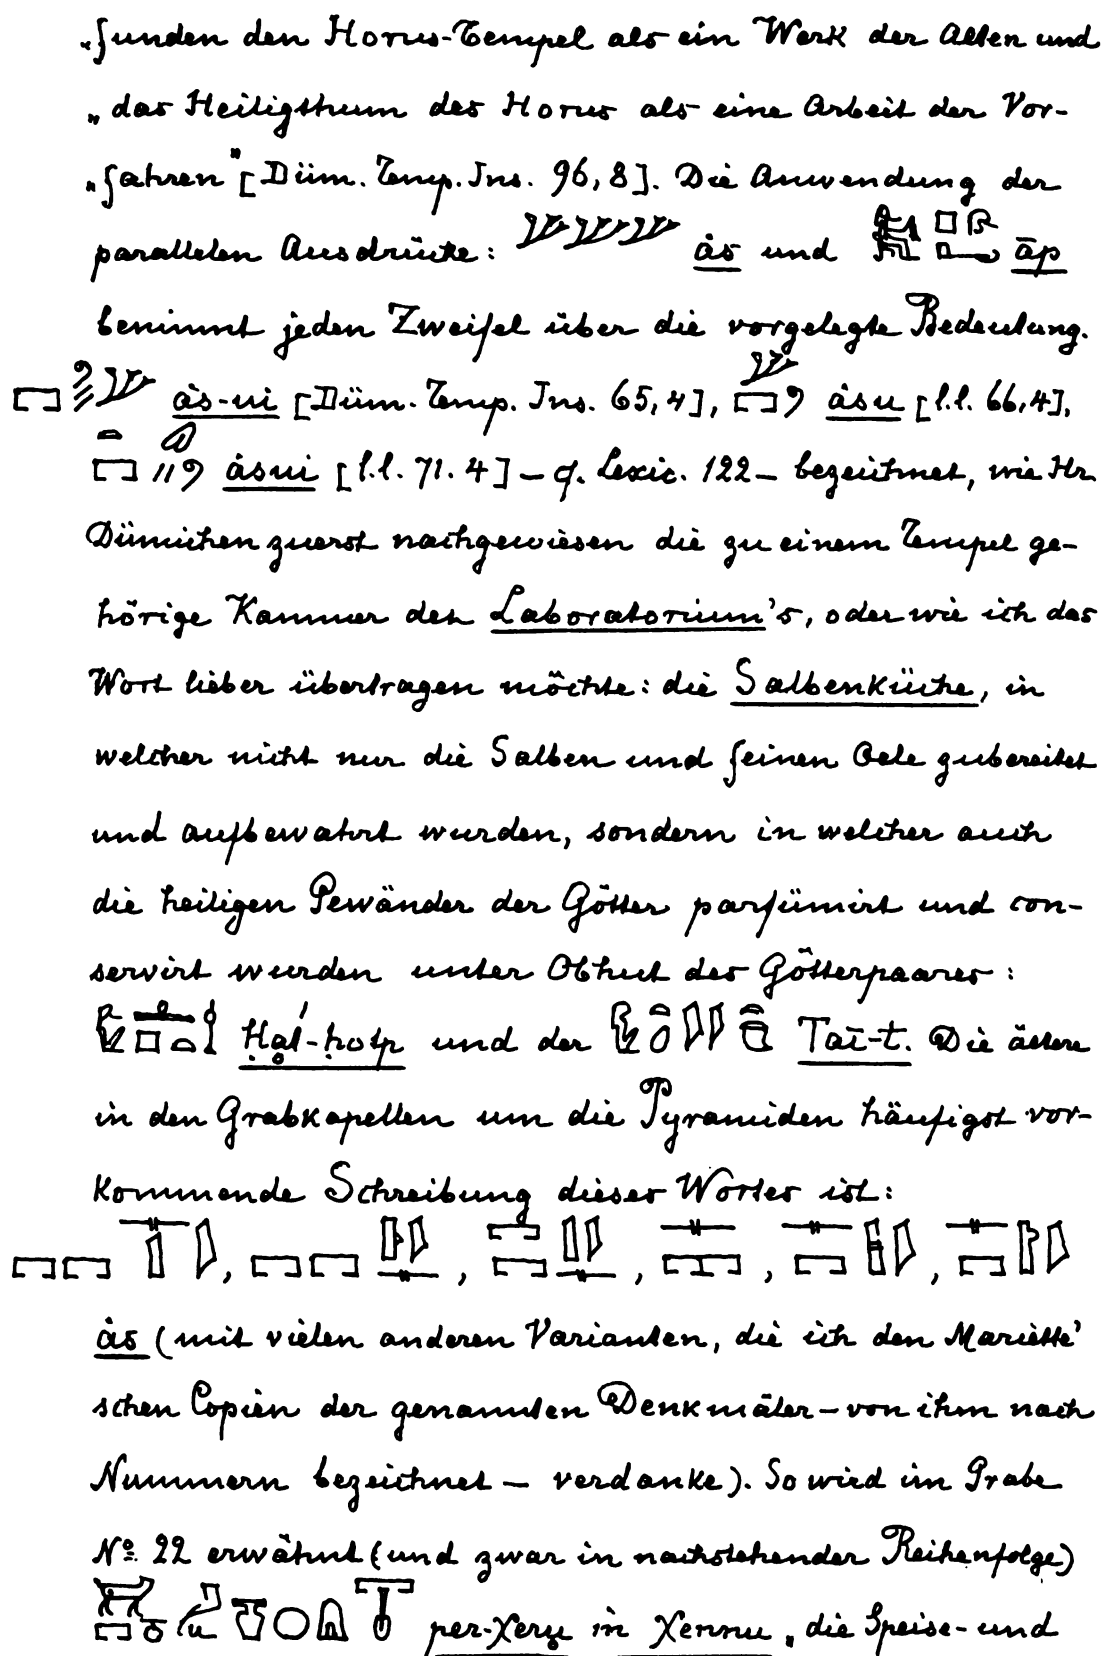 „funden den Horus-Tempel als ein Werk der Alten und
„das Heiligthum des Horus als eine Arbeit der Vor-
„fahren" [Düm. Temp. Ins. 96,8]. Die Anwendung der
parallelen Ausdrücke: ȧs und āp
benimmt jeden Zweifel über die vorgelegte Bedeutung.
ȧs-ui [Düm. Temp. Ins. 65,4], ȧsu [l.l. 66,4],
ȧsui [l.l. 71.4] — cf. Lexic. 122 — bezeichnet, wie Hr.
Dümichen zuerst nachgewiesen die zu einem Tempel ge-
hörige Kammer des Laboratorium's, oder wie ich das
Wort lieber übertragen möchte: die Salbenküche, in
welcher nicht nur die Salben und feinen Oele zubereitet
und aufbewahrt wurden, sondern in welcher auch
die heiligen Gewänder der Götter parfümirt und con-
servirt wurden unter Obhut des Götterpaares:
und der Tai-t. Die ältere
in den Grabkapellen um die Pyramiden häufigst vor-
kommende Schreibung dieses Wortes ist:
ȧs (mit vielen anderen Varianten, die ich den Mariette'
schen Copien der genannten Denkmäler — von ihm nach
Nummern bezeichnet — verdanke). So wird im Grabe
Nº 22 erwähnt (und zwar in nachstehender Reihenfolge)
in Xennu „die Speise- und